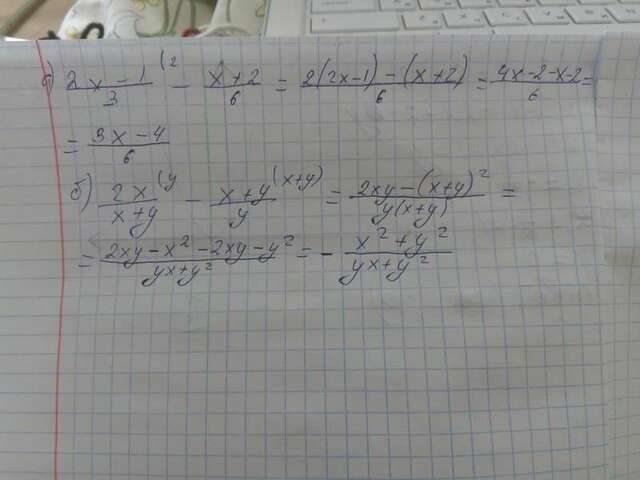 б) (2x-1)/3 (2 - (x+2)/6 = (2(2x-1)-(x+2))/6 = (4x-2-x-2)/6 =
= (3x-4)/6
б) 2x/(x+y) (y - (x+y)/y (x+y) = (2xy-(x+y)²)/(y(x+y)) =
= (2xy-x²-2xy-y²)/(yx+y²) = - (x²+y²)/(yx+y²)